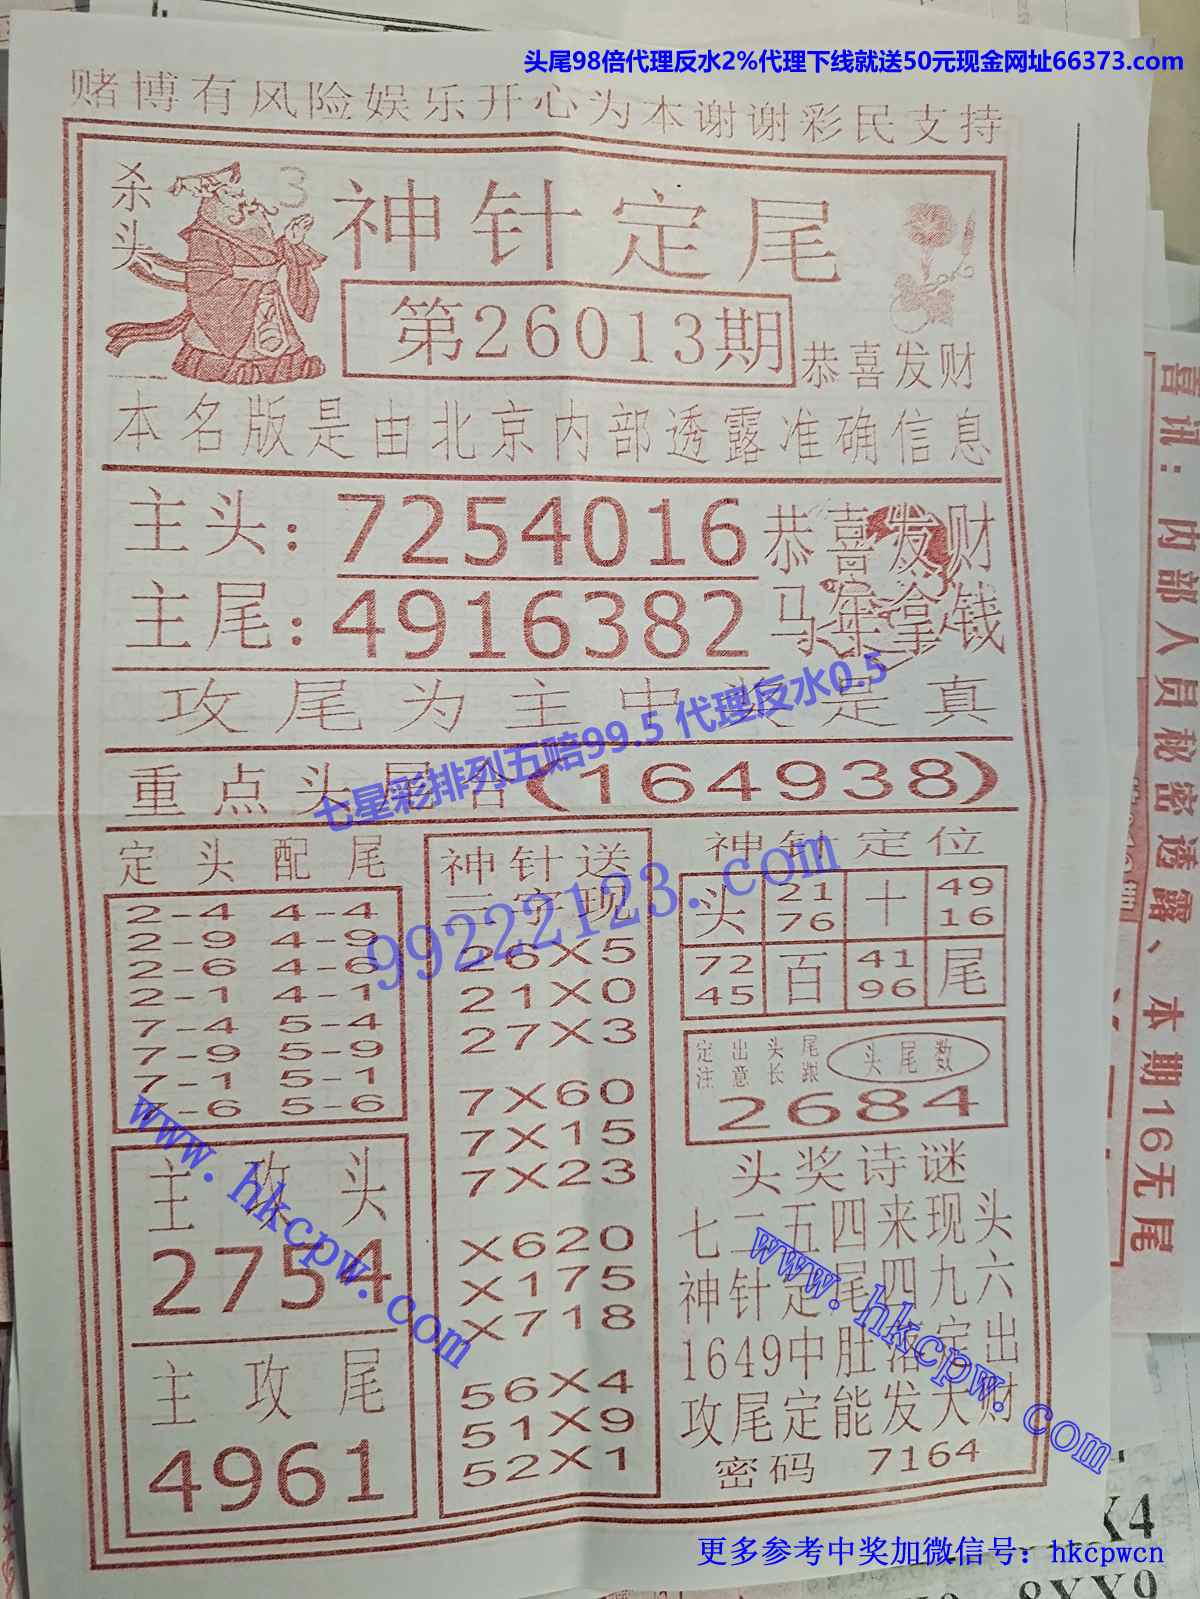 头尾98倍代理反水2%代理下线就送50元现金网址66373.com
赌博有风险娱乐开心为本谢谢彩民支持
杀头 3
神针定尾
第26013期
恭喜发财
本名版是由北京内部透露准确信息
主头：7254016 恭喜发财
主尾：4916382 马年拿钱
攻尾为主中奖是真
七星彩排列五赔99.5 代理反水0.5
重点头尾合(164938)
定头配尾
2-4 4-4
2-9 4-9
2-6 4-6
2-1 4-1
7-4 5-4
7-9 5-9
7-1 5-1
7-6 5-6
主攻头
2754
主攻尾
4961
神针送
三字现
26X5
21X0
27X3
7X60
7X15
7X23
X620
X175
X718
56X4
51X9
52X1
99222123.com
神针定位
头 21 十 49
76 16
72 百 41 尾
45 96
定出头尾
注意长跟
头尾数
2684
头奖诗谜
七二五四来现头
神针定尾四九六
1649中肚落定出
攻尾定能发大财
密码 7164
www.hkcpw.com
www.hkcpw.com
喜讯：内部人员秘密透露、本期16无尾
X4
8XX9
更多参考中奖加微信号：hkcpwcn